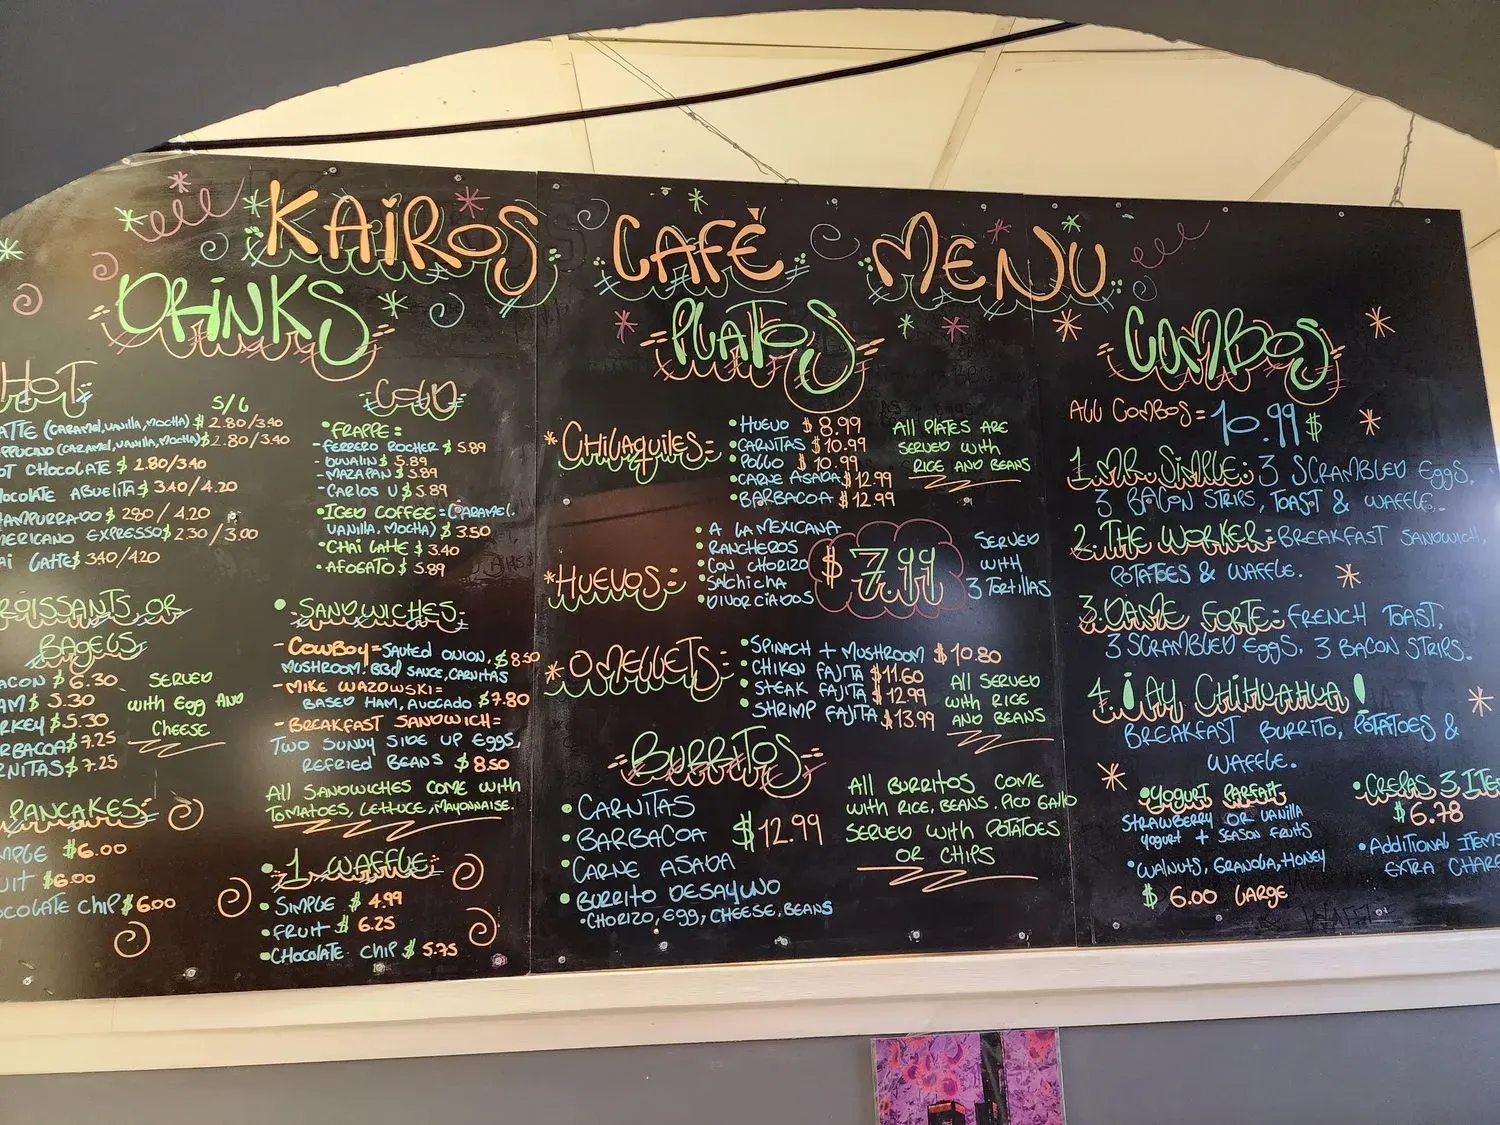 KAIROS CAFÈ MENU
DRINKS
HOT
S/L
ATTE (CARAMEL, VANILLA, MOCHA) $ 2.80/3.40
PPUCINO (CARAMEL, VANILLA, MOCHA) $ 2.80/3.40
OT CHOCOLATE $ 2.80/3.40
HOCOLATE ABUELITA $ 3.40/4.20
HAMPURRADO $ 2.80/4.20
MERICANO EXPRESSO $ 2.30/3.00
AI LATTE $ 3.40/4.20
COLD
•FRAPPE=
-FERRERO ROCHER $ 5.89
-DUVALIN $ 5.89
-MAZAPAN $ 5.89
-CARLOS V $ 5.89
•ICED COFFEE=(CARAMEL,
VANILLA, MOCHA) $ 3.50
•CHAI LATTE $ 3.40
•AFOGATO $ 5.89
ROISSANTS OR
BAGELS
ACON $ 6.30
AM $ 5.30
RKEY $ 5.30
RBACOA $ 7.25
RNITAS $ 7.25
SERVED
WITH EGG AND
CHEESE
PANCAKES:
MPLE $6.00
UIT $6.00
OCOLATE CHIP $ 6.00
•SANDWICHES=
-COWBOY=SAUTED ONION, $ 8.50
MUSHROOM, BBQ SAUCE, CARNITAS
-MIKE WAZOWSKI=
BASED HAM, AVOCADO $7.80
-BREAKFAST SANDWICH=
TWO SUNNY SIDE UP EGGS,
REFRIED BEANS $ 8.50
ALL SANDWICHES COME WITH
TOMATOES, LETTUCE, MAYONNAISE.
•1 WAFFLE:
•SIMPLE $ 4.99
•FRUIT $ 6.25
•CHOCOLATE CHIP $ 5.75
PLATOS
*CHILAQUILES=
•HUEVO $ 8.99
•CARNITAS $ 10.99
•POLLO $ 10.99
•CARNE ASADA $ 12.99
•BARBACOA $ 12.99
ALL PLATES ARE
SERVED WITH
RICE AND BEANS
*HUEVOS=
•A LA MEXICANA
•RANCHEROS
•CON CHORIZO
•SALCHICHA
•DIVORCIADOS
$ 7.99
SERVED
WITH
3 TORTILLAS
*OMELLETS=
•SPINACH + MUSHROOM $ 10.80
•CHIKEN FAJITA $11.60
•STEAK FAJITA $ 12.99
•SHRIMP FAJITA $13.99
ALL SERVED
WITH RICE
AND BEANS
BURRITOS
•CARNITAS
•BARBACOA
•CARNE ASADA
•BURRITO DESAYUNO
•CHORIZO, EGG, CHEESE, BEANS
$12.99
ALL BURRITOS COME
WITH RICE, BEANS, PICO GALLO
SERVED WITH POTATOES
OR CHIPS
COMBOS
ALL COMBOS= 10.99 $
1.MR. SIMPLE: 3 SCRAMBLED EGGS,
3 BACON STRIPS, TOAST & WAFFLE.
2.THE WORKER=BREAKFAST SANDWICH,
POTATOES & WAFFLE.
3.DAME FORTE=FRENCH TOAST,
3 SCRAMBLED EGGS, 3 BACON STRIPS.
4.¡AY CHIHUAHUA!
BREAKFAST BURRITO, POTATOES &
WAFFLE.
•YOGURT PARFAIT
STRAWBERRY OR VANILLA
YOGURT + SEASON FRUITS
•WALNUTS, GRANOLA, HONEY
$ 6.00 LARGE
•CREPAS 3 ITE
$6.78
•ADDITIONAL ITEMS
EXTRA CHAR